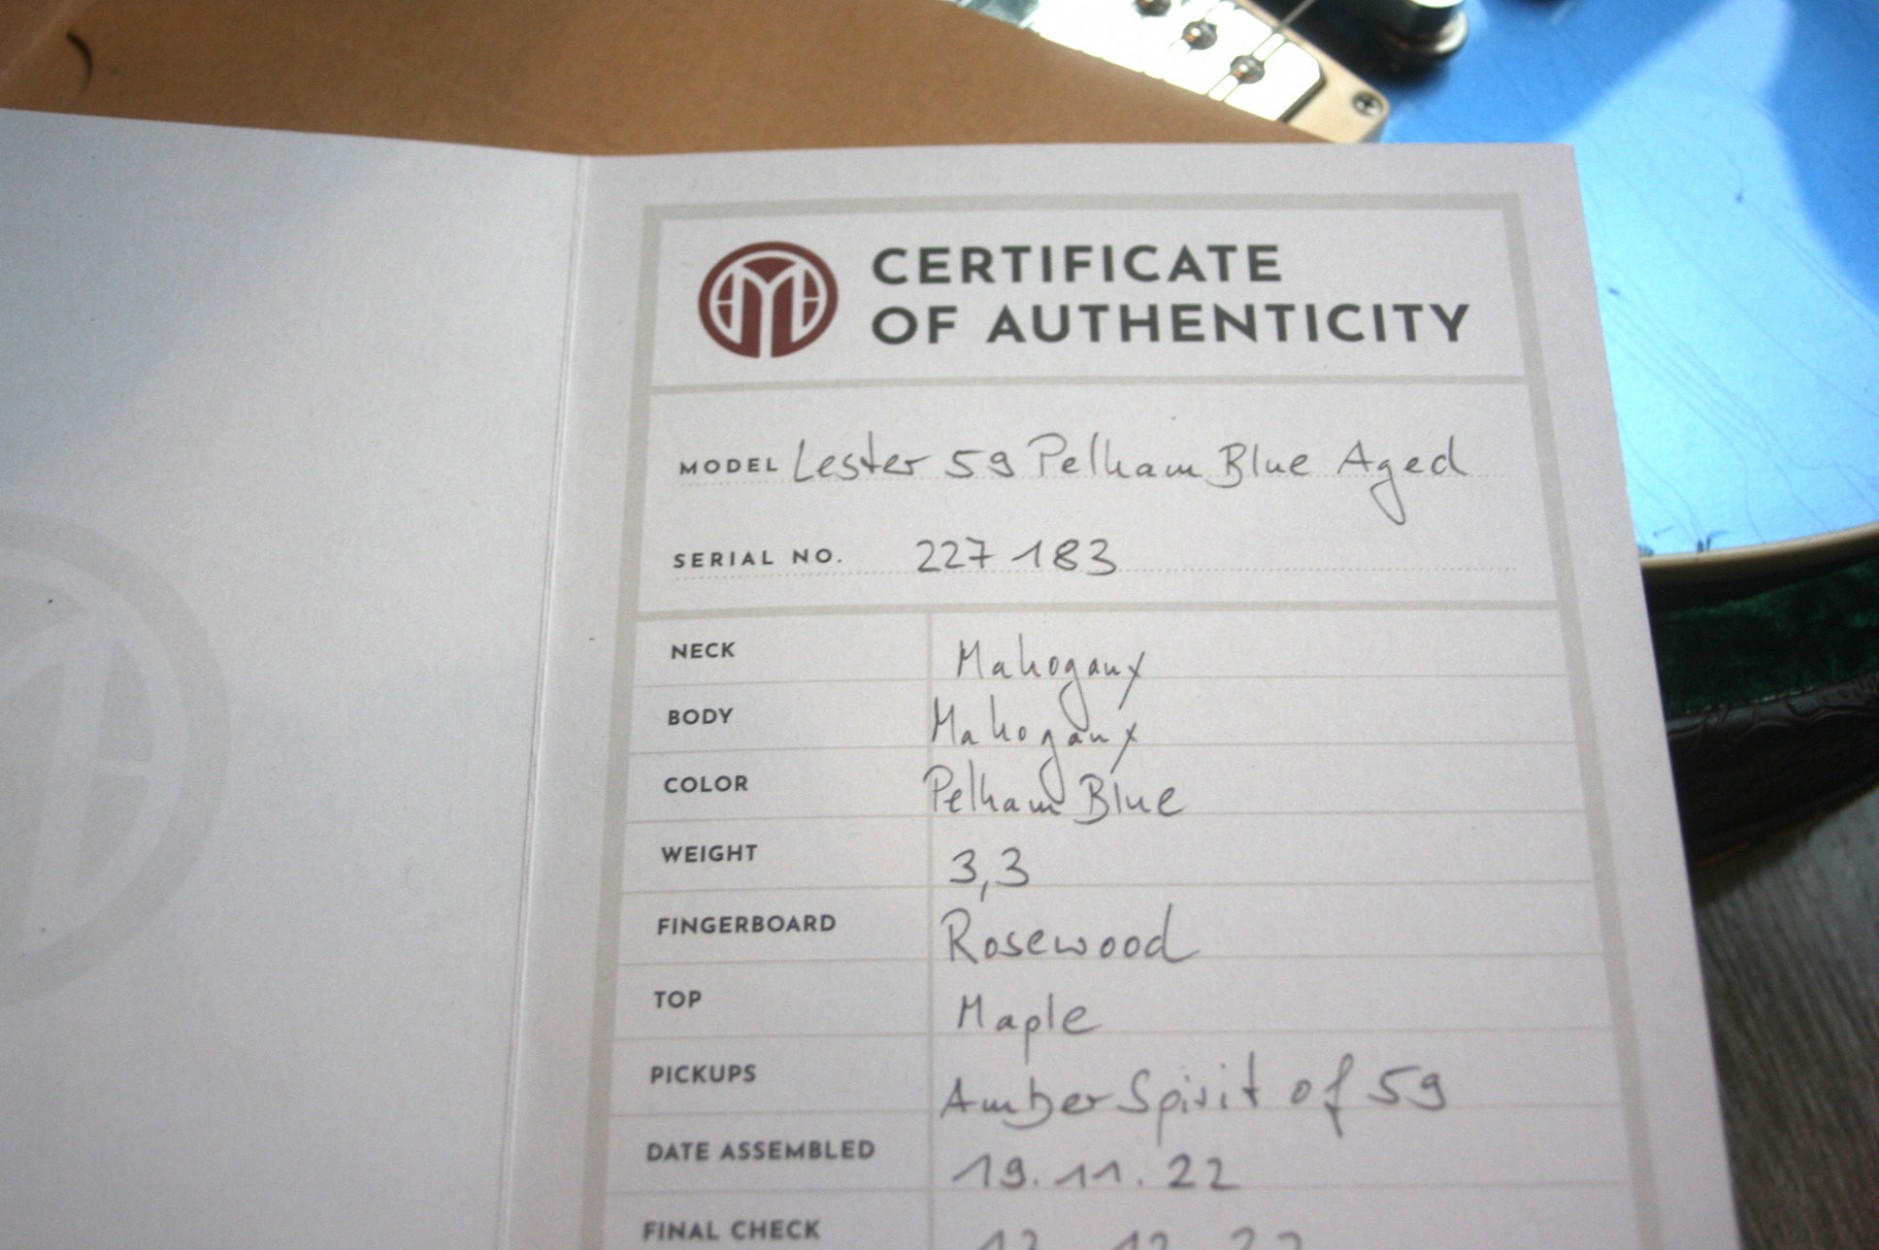 CERTIFICATE
OF AUTHENTICITY
MODEL Lester 59 Pelham Blue Aged
SERIAL NO. 227 183
NECK Mahogany
BODY Mahogany
COLOR Pelham Blue
WEIGHT 3,3
FINGERBOARD Rosewood
TOP Maple
PICKUPS Amber Spirit of 59
DATE ASSEMBLED 19.11.22
FINAL CHECK